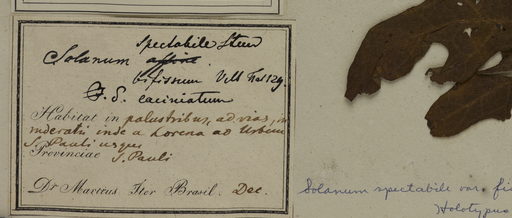 Solanum spectabile Steud
affine
bifissum Vell Fas 129.
F. S. laciniatum
Habitat in palustribus, ad vias, in
ruderatis inde a Lorena ad Urbem
S. Pauli usque
Provinciae S. Pauli
Dr Martius Iter Brasil. Dec.
Solanum spectabile var.
Holotypus